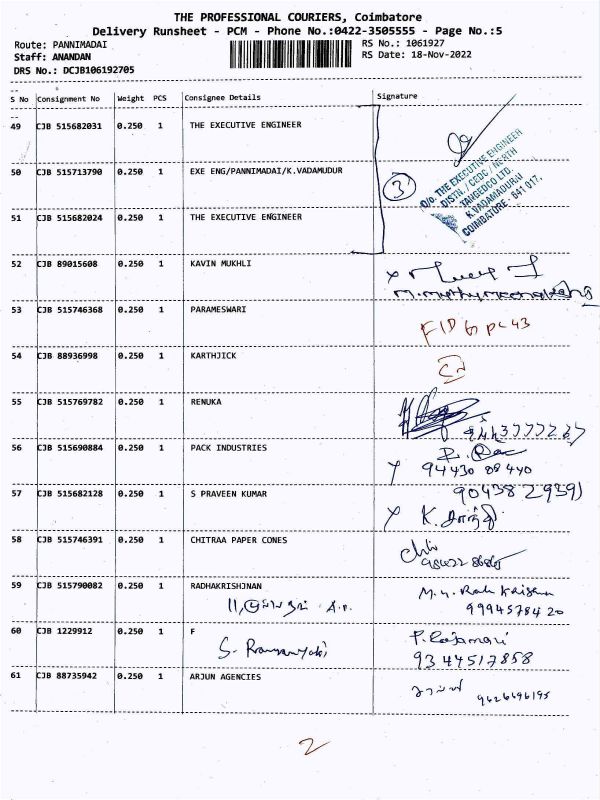 THE PROFESSIONAL COURIERS, Coimbatore
Delivery Runsheet - PCM - Phone No.:0422-3505555 - Page No.:5
Route: PANNIMADAI
RS No.: 1061927
Staff: ANANDAN
RS Date: 18-Nov-2022
DRS No.: DCJB106192705
S No Consignment No Weight PCS Consignee Details Signature
49 CJB 515682031 0.250 1 THE EXECUTIVE ENGINEER
50 CJB 515713790 0.250 1 EXE ENG/PANNIMADAI/K.VADAMUDUR
3
O/o. THE EXECUTIVE ENGINEER
DISTN. / CEDC / NORTH
TANGEDCO LTD.
K.VADAMADURAI
COIMBATORE - 641 017.
51 CJB 515682024 0.250 1 THE EXECUTIVE ENGINEER
52 CJB 89015608 0.250 1 KAVIN MUKHLI
53 CJB 515746368 0.250 1 PARAMESWARI
54 CJB 88936998 0.250 1 KARTHJICK
55 CJB 515769782 0.250 1 RENUKA
56 CJB 515690884 0.250 1 PACK INDUSTRIES
94430 08440
57 CJB 515682128 0.250 1 S PRAVEEN KUMAR
58 CJB 515746391 0.250 1 CHITRAA PAPER CONES
59 CJB 515790082 0.250 1 RADHAKRISHJNAN
9994578420
60 CJB 1229912 0.250 1 F
9344517858
61 CJB 88735942 0.250 1 ARJUN AGENCIES
9626696195
2